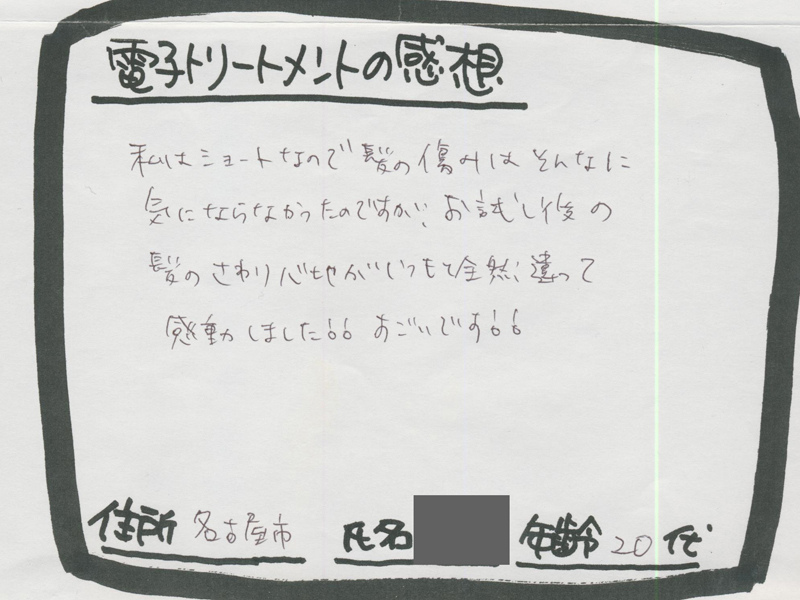 電子トリートメントの感想
私はショートなので髪の傷みはそんなに
気にならなかったのですが、お試し後の
髪のさわり心地がいつもと全然違って
感動しました!! すごいです!!
住所 名古屋市 氏名 年齢 20代